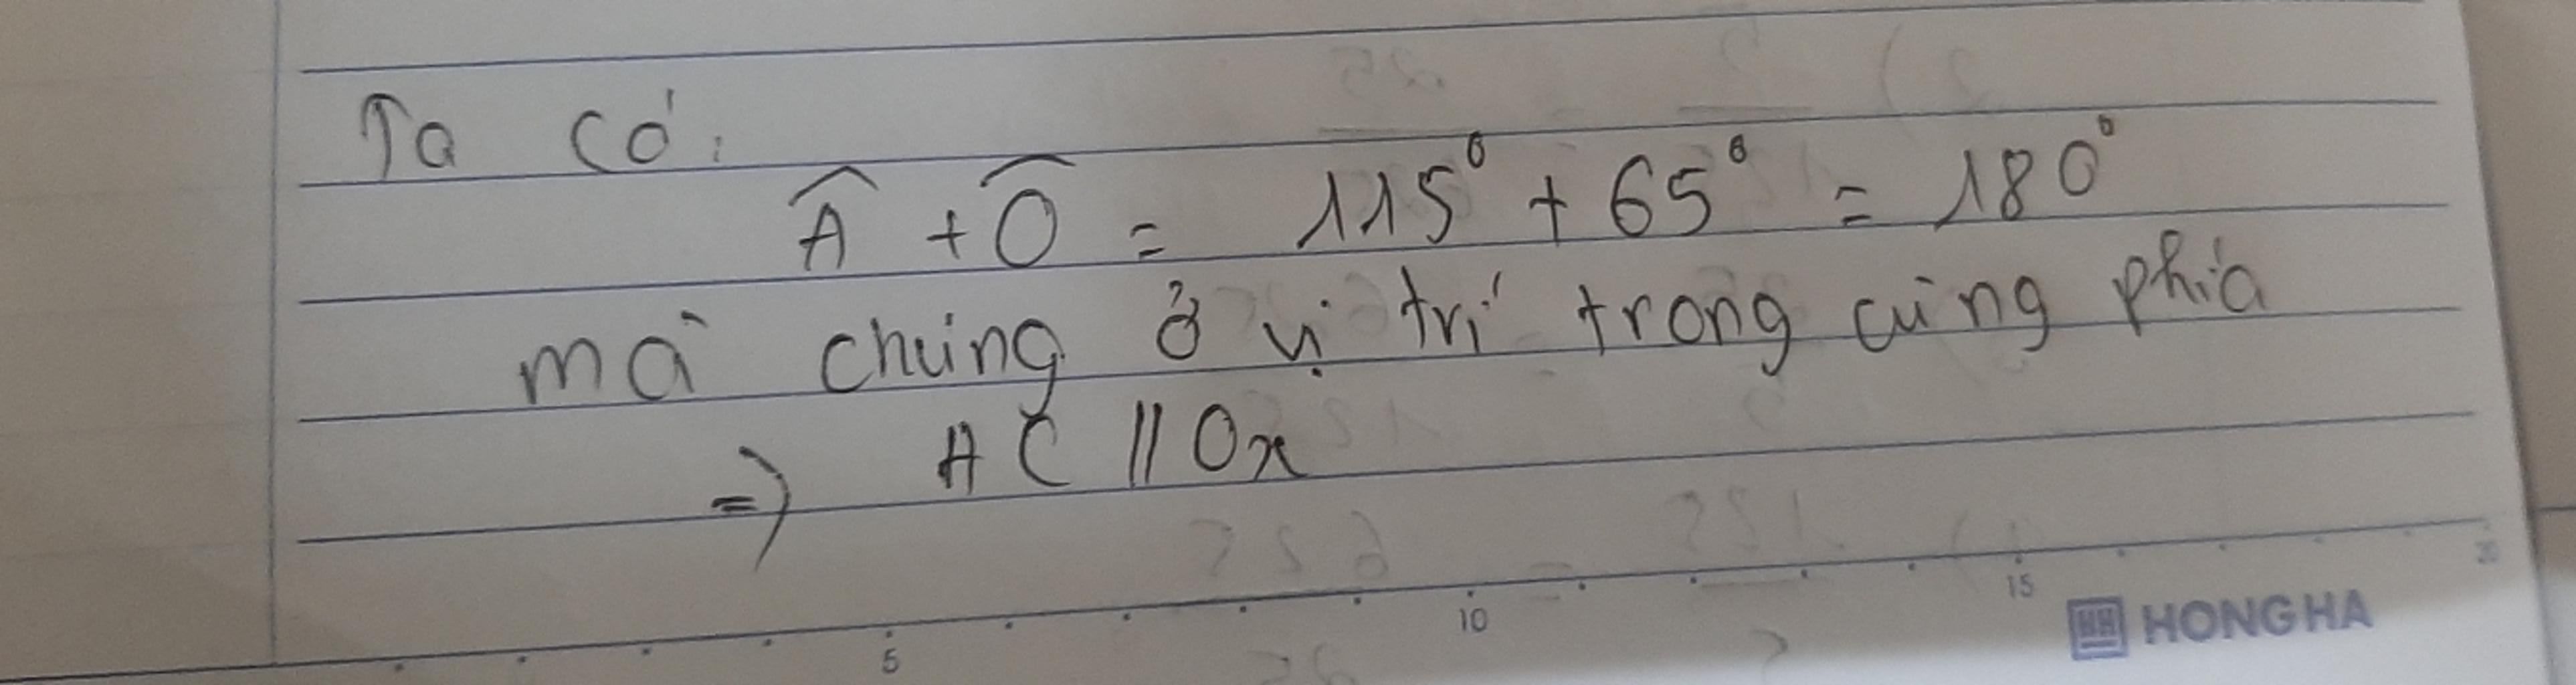 Ta có:
Â + Ô = 115° + 65° = 180°
mà chúng ở vị trí trong cùng phía
=> AC // Ox
5 10 15 20
HONG HA